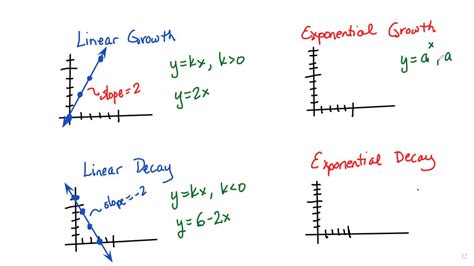 Linear Growth
y=kx, k>0
~slope=2
y=2x
Exponential Growth
y=a^x, a
Linear Decay
y=kx, k<0
~slope=-2
y=6-2x
Exponential Decay